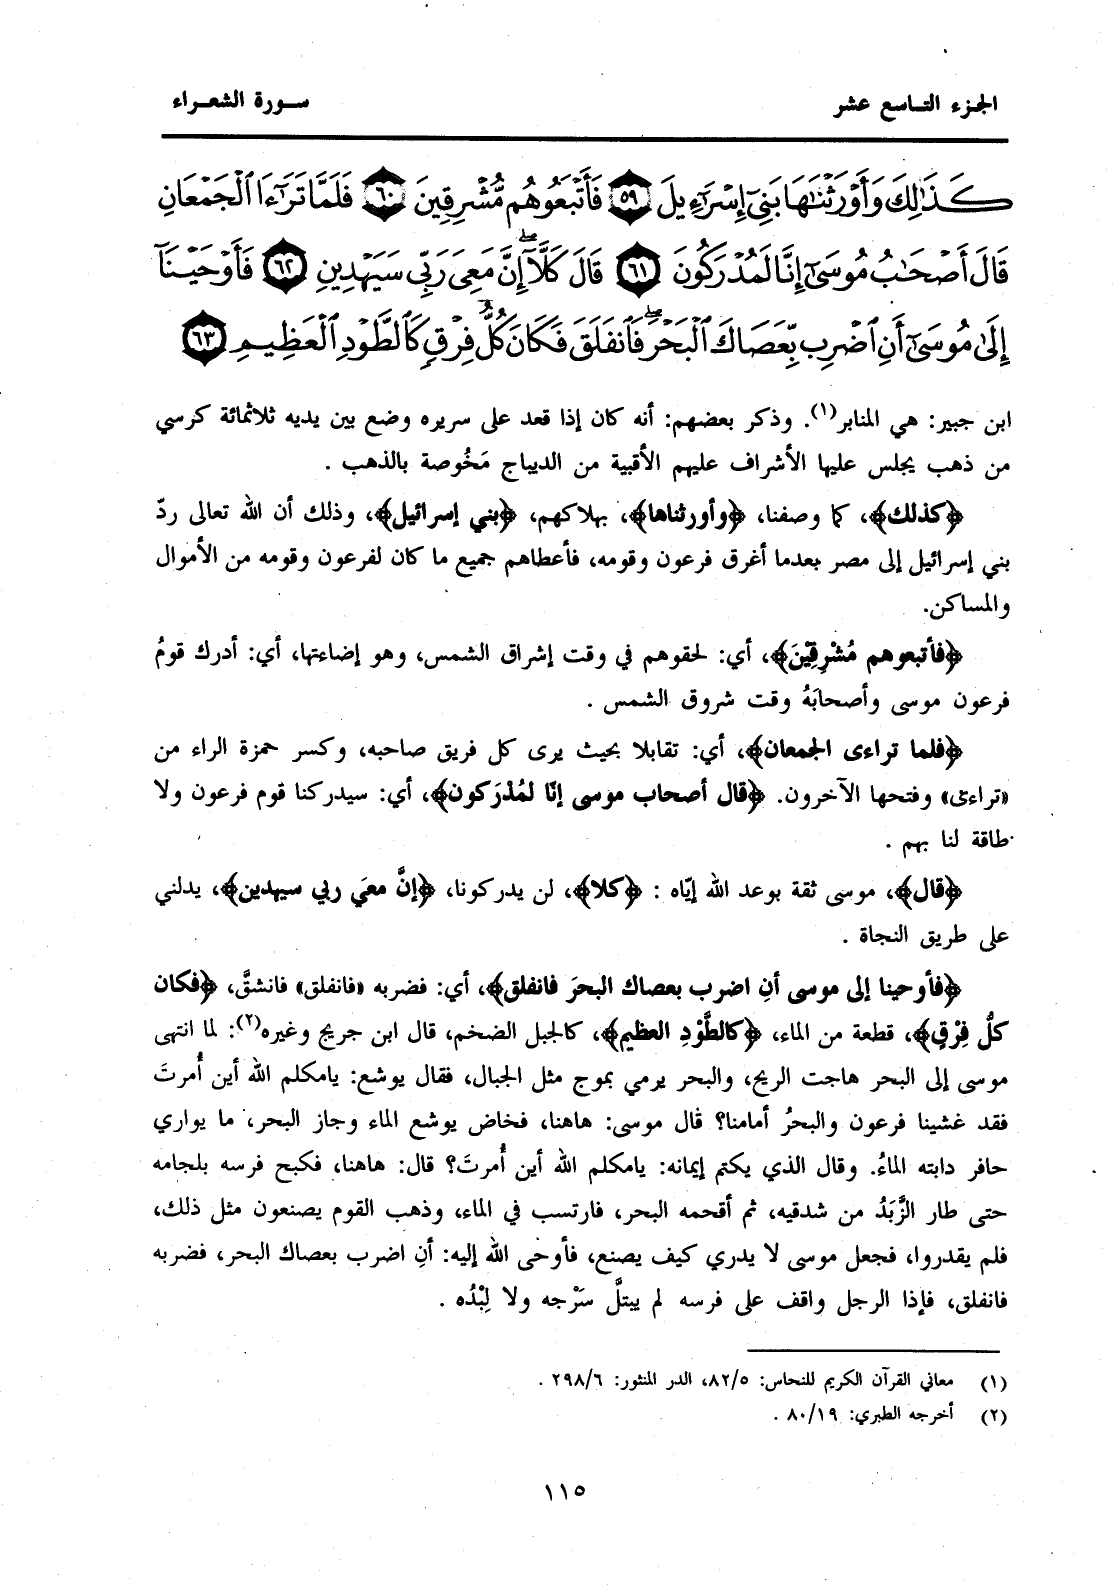 الجزء التاسع عشر
سورة الشعراء
كَذَٰلِكَ وَأَوْرَثْنَٰهَا بَنِىٓ إِسْرَٰٓءِيلَ ٥٩ فَأَتْبَعُوهُم مُّشْرِقِينَ ٦٠ فَلَمَّا تَرَٰٓءَا ٱلْجَمْعَانِ
قَالَ أَصْحَٰبُ مُوسَىٰٓ إِنَّا لَمُدْرَكُونَ ٦١ قَالَ كَلَّآ ۖ إِنَّ مَعِىَ رَبِّى سَيَهْدِينِ ٦٢ فَأَوْحَيْنَآ
إِلَىٰ مُوسَىٰٓ أَنِ ٱضْرِب بِّعَصَاكَ ٱلْبَحْرَ ۖ فَٱنفَلَقَ فَكَانَ كُلُّ فِرْقٍ كَٱلطَّوْدِ ٱلْعَظِيمِ ٦٣
ابن جبير: هي المنابر(١). وذكر بعضهم: أنه كان إذا قعد على سريره وضع بين يديه ثلاثمائة كرسي
من ذهب يجلس عليها الأشراف عليهم الأقبية من الديباج مَخُوصة بالذهب .
﴿كذلك﴾، كما وصفنا، ﴿وأورثناها﴾، بهلاكهم، ﴿بني إسرائيل﴾، وذلك أن الله تعالى ردّ
بني إسرائيل إلى مصر بعدما أغرق فرعون وقومه، فأعطاهم جميع ما كان لفرعون وقومه من الأموال
والمساكن.
﴿فأتبعوهم مُشْرِقِيْنَ﴾، أي: لحقوهم في وقت إشراق الشمس، وهو إضاءتها، أي: أدرك قومُ
فرعون موسى وأصحابَهُ وقت شروق الشمس .
﴿فلما تراءى الجمعان﴾، أي: تقابلا بحيث يرى كل فريق صاحبه، وكسر حمزة الراء من
«تراءى» وفتحها الآخرون. ﴿قال أصحاب موسى إنّا لمُدْرَكون﴾، أي: سيدركنا قوم فرعون ولا
طاقة لنا بهم .
﴿قال﴾، موسى ثقة بوعد الله إيّاه : ﴿كلا﴾، لن يدركونا، ﴿إنَّ معيَ ربي سيهدين﴾، يدلني
على طريق النجاة .
﴿فأوحينا إلى موسى أنِ اضرب بعصاك البحرَ فانفلق﴾، أي: فضربه «فانفلق» فانشقَّ، ﴿فكان
كلُّ فِرْقٍ﴾، قطعة من الماء، ﴿كالطَّوْدِ العظيم﴾، كالجبل الضخم، قال ابن جريج وغيره(٢): لما انتهى
موسى إلى البحر هاجت الريح، والبحر يرمي بموج مثل الجبال، فقال يوشع: يامكلم الله أين أُمرتَ
فقد غشينا فرعون والبحرُ أمامنا؟ قال موسى: هاهنا، فخاض يوشع الماء وجاز البحر، ما يواري
حافر دابته الماءُ. وقال الذي يكتم إيمانه: يامكلم الله أين أُمرتَ؟ قال: هاهنا، فكبح فرسه بلجامه
حتى طار الزَّبَدُ من شدقيه، ثم أقحمه البحر، فارتسب في الماء، وذهب القوم يصنعون مثل ذلك،
فلم يقدروا، فجعل موسى لا يدري كيف يصنع، فأوحى الله إليه: أنِ اضرب بعصاك البحر، فضربه
فانفلق، فإذا الرجل واقف على فرسه لم يبتلَّ سَرْجه ولا لِبْدُه .
(١) معاني القرآن الكريم للنحاس: ٨٢/٥، الدر المنثور: ٢٩٨/٦ .
(٢) أخرجه الطبري: ٨٠/١٩ .
١١٥